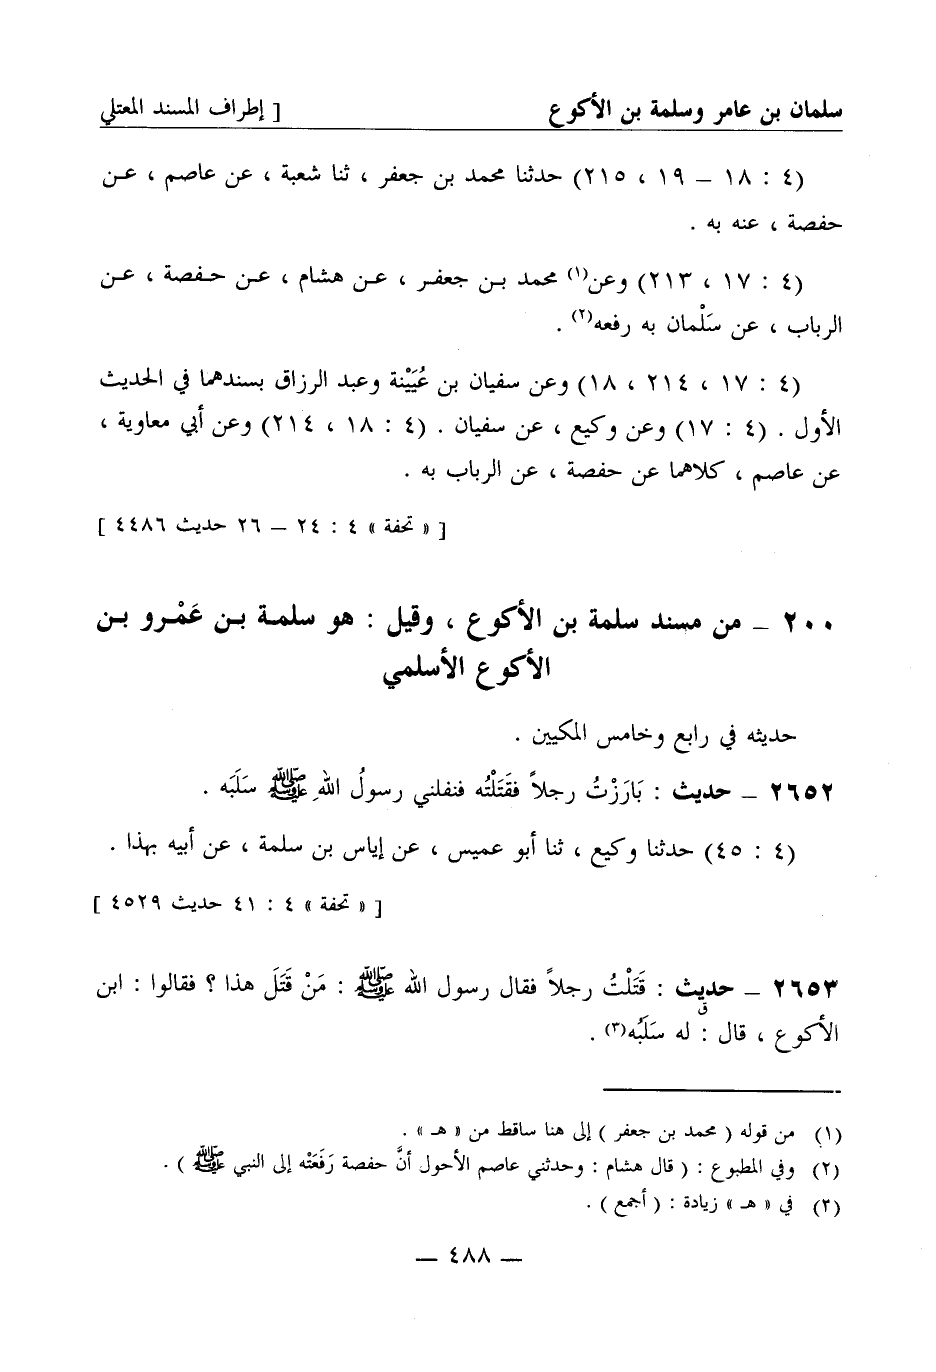 سلمان بن عامر وسلمة بن الأكوع [ إطراف المسند المعتلي
(٤ : ١٨ – ١٩ ، ٢١٥) حدثنا محمد بن جعفر ، ثنا شعبة ، عن عاصم ، عن
حفصة ، عنه به .
(٤ : ١٧ ، ٢١٣) وعن(١) محمد بن جعفر ، عن هشام ، عن حفصة ، عن
الرباب ، عن سَلْمان به رفعه(٢) .
(٤ : ١٧ ، ٢١٤ ، ١٨) وعن سفيان بن عُيَيْنة وعبد الرزاق بسندهما في الحديث
الأول . (٤ : ١٧) وعن وكيع ، عن سفيان . (٤ : ١٨ ، ٢١٤) وعن أبي معاوية ،
عن عاصم ، كلاهما عن حفصة ، عن الرباب به .
[ « تحفة » ٤ : ٢٤ – ٢٦ حديث ٤٤٨٦ ]
٢٠٠ – من مسند سلمة بن الأكوع ، وقيل : هو سلمة بن عَمْرو بن
الأكوع الأسلمي
حديثه في رابع وخامس المكيين .
٢٦٥٢ – حديث : بَارَزْتُ رجلاً فقَتَلْتُه فنفلني رسولُ اللهِ ﷺ سَلَبَه .
(٤ : ٤٥) حدثنا وكيع ، ثنا أبو عميس ، عن إياس بن سلمة ، عن أبيه بهذا .
[ « تحفة » ٤ : ٤١ حديث ٤٥٢٩ ]
٢٦٥٣ – حديث : قَتَلْتُ رجلاً فقال رسول الله ﷺ : مَنْ قَتَلَ هذا ؟ فقالوا : ابن
ق
الأكوع ، قال : له سَلَبُه(٣) .
(١) من قوله ( محمد بن جعفر ) إلى هنا ساقط من « هـ » .
(٢) وفي المطبوع : ( قال هشام : وحدثني عاصم الأحول أنَّ حفصة رَفَعَتْه إلى النبي ﷺ ) .
(٣) في « هـ » زيادة : ( أجمع ) .
– ٤٨٨ –